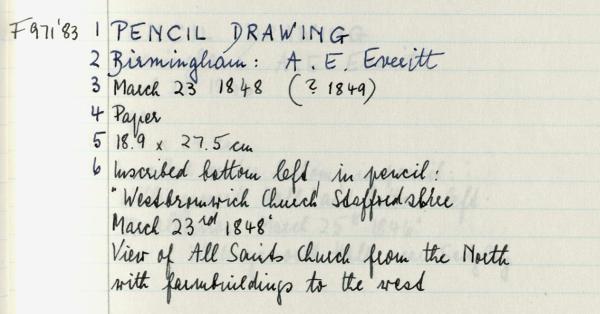 F971'83 1 PENCIL DRAWING
2 Birmingham: A. E. Everitt
3 March 23 1848 (? 1849)
4 Paper
5 18.9 x 27.5 cm
6 Inscribed bottom left in pencil:
"Westbromwich Church Staffordshire
March 23rd 1848"
View of All Saints Church from the North
with farmbuildings to the west